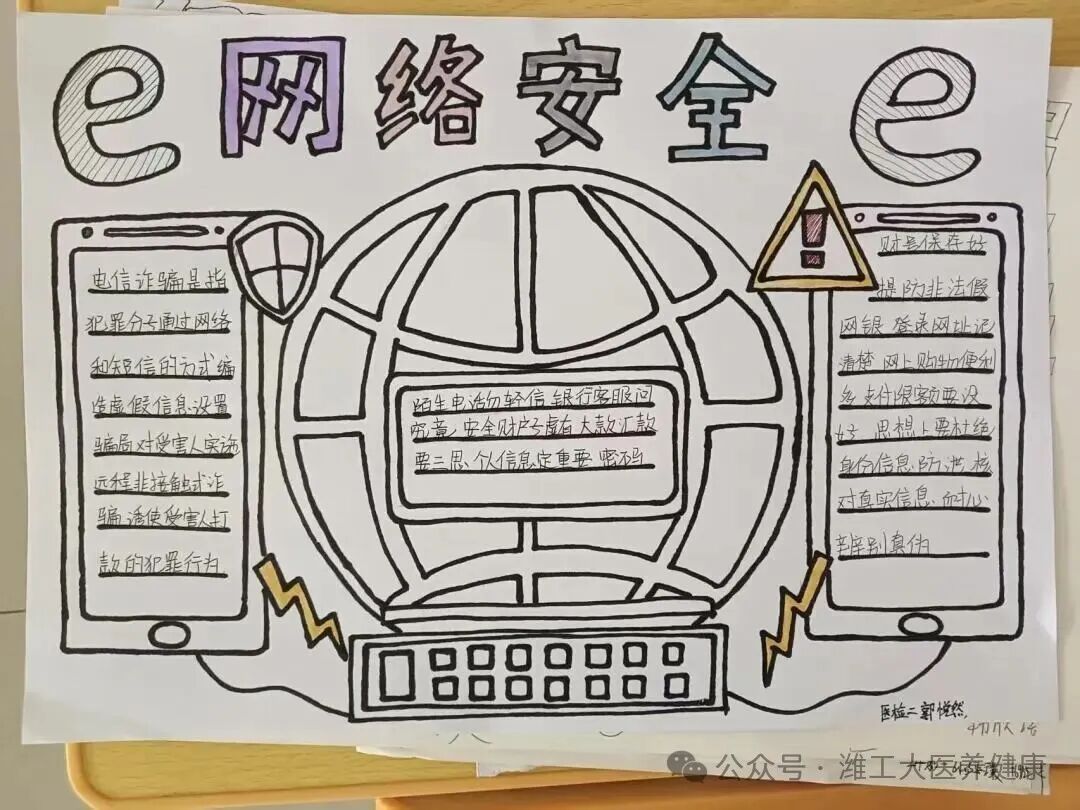 e 网络安全 e
电信诈骗是指
犯罪分子通过网络
和短信的方式编
造虚假信息设置
骗局对受害人实施
远程非接触式诈
骗 诱使受害人打
款的犯罪行为
陌生电话勿轻信 银行客服问
究竟 安全财户子虚有 大款汇款
要三思 个人信息定重要 密码
财号保存好
提防非法假
网银 登录网址记
清楚 网上购物便利
多 支付限客额要设
好 思想上要杜绝
身份信息防泄 核
对真实信息 耐心
辨别真伪
医检二 郭悦然
公众号·潍工大医养健康